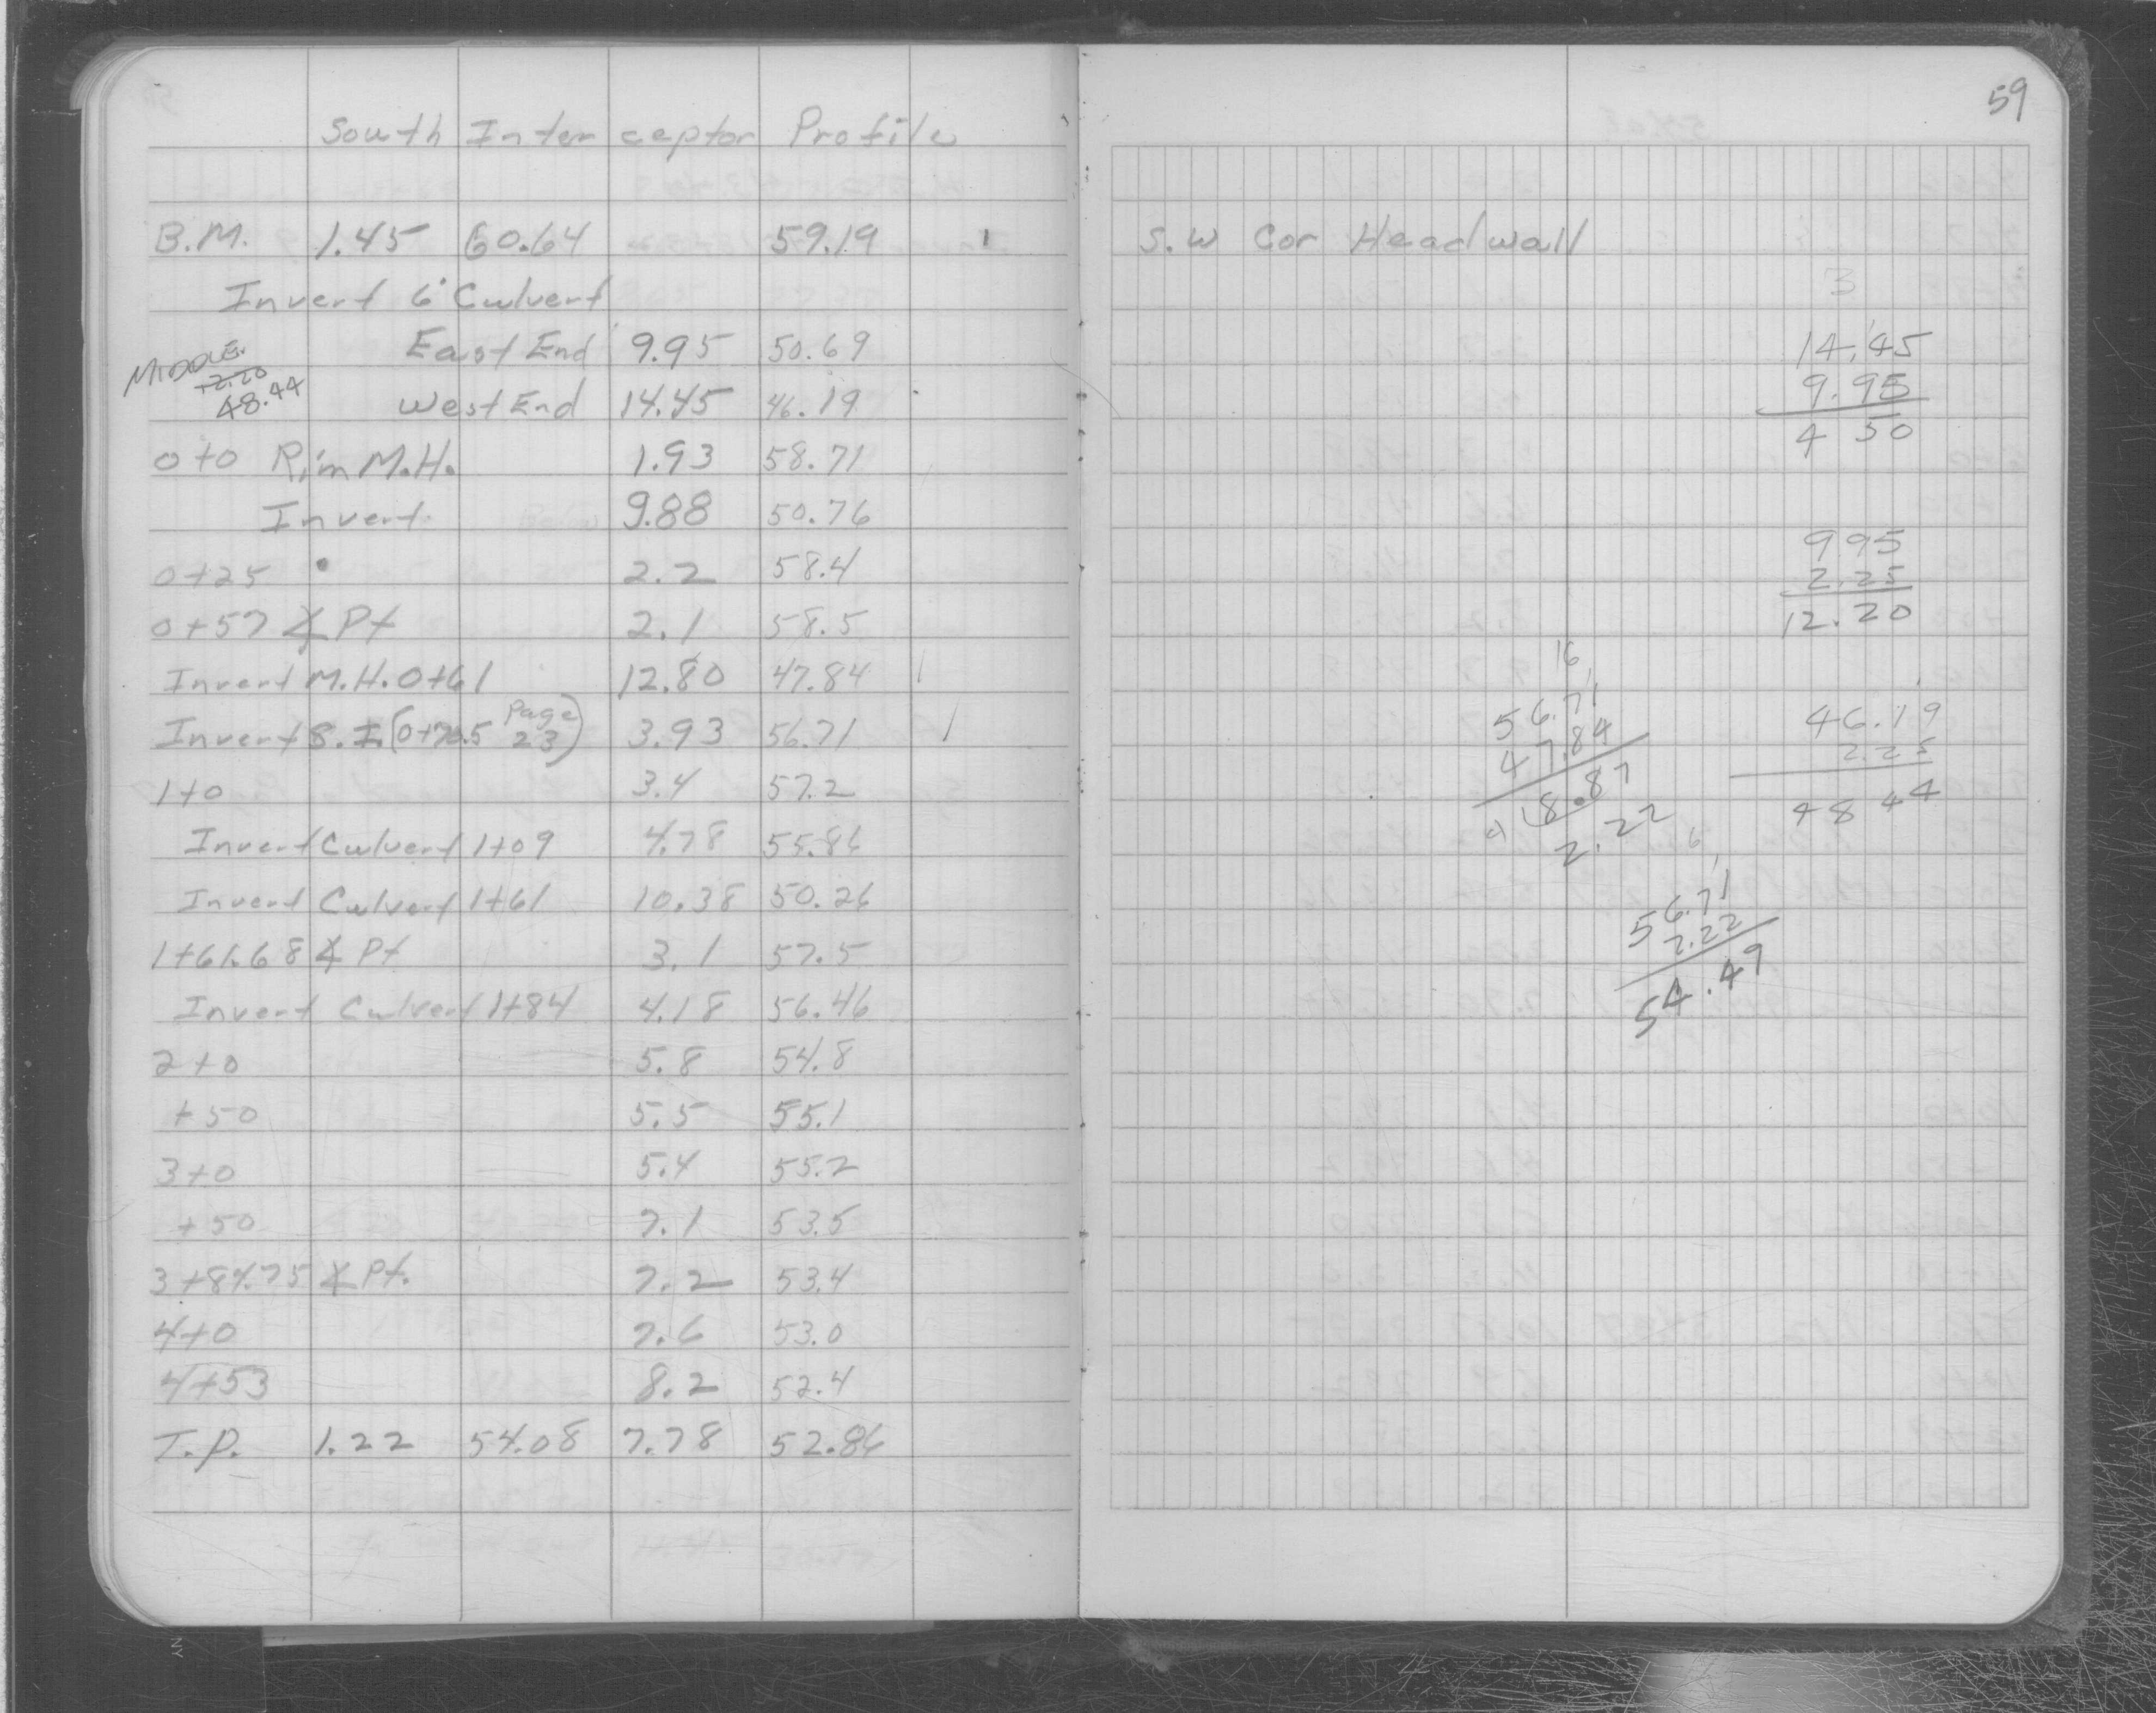 59
South Interceptor Profile
B.M. 1.45 60.64 59.19
Invert 6' Culvert
East End 9.95 50.69
MIDDLE
48.44
West End 14.45 46.19
0+0 Rim M.H. 1.93 58.71
Invert 9.88 50.76
0+25 2.2 58.4
0+57 ∡ Pt 2.1 58.5
Invert M.H. 0+61 12.80 47.84
Invert S.I. (0+70.5 Page 23) 3.93 56.71
1+0 3.4 57.2
Invert Culvert 1+09 4.78 55.86
Invert Culvert 1+61 10.38 50.26
1+61.68 ∡ Pt 3.1 57.5
Invert Culvert 1+84 4.18 56.46
2+0 5.8 54.8
+50 5.5 55.1
3+0 5.4 55.2
+50 7.1 53.5
3+84.75 ∡ Pt. 7.2 53.4
4+0 7.6 53.0
4+53 8.2 52.4
T.P. 1.22 54.08 7.78 52.86
S.W Cor Headwall
3
14.45
9.95
4 50
9 95
2.25
12.20
46.19
2.25
48 44
16
56.71
47.84
8.87
2.22
56.71
2.22
54.49
NY